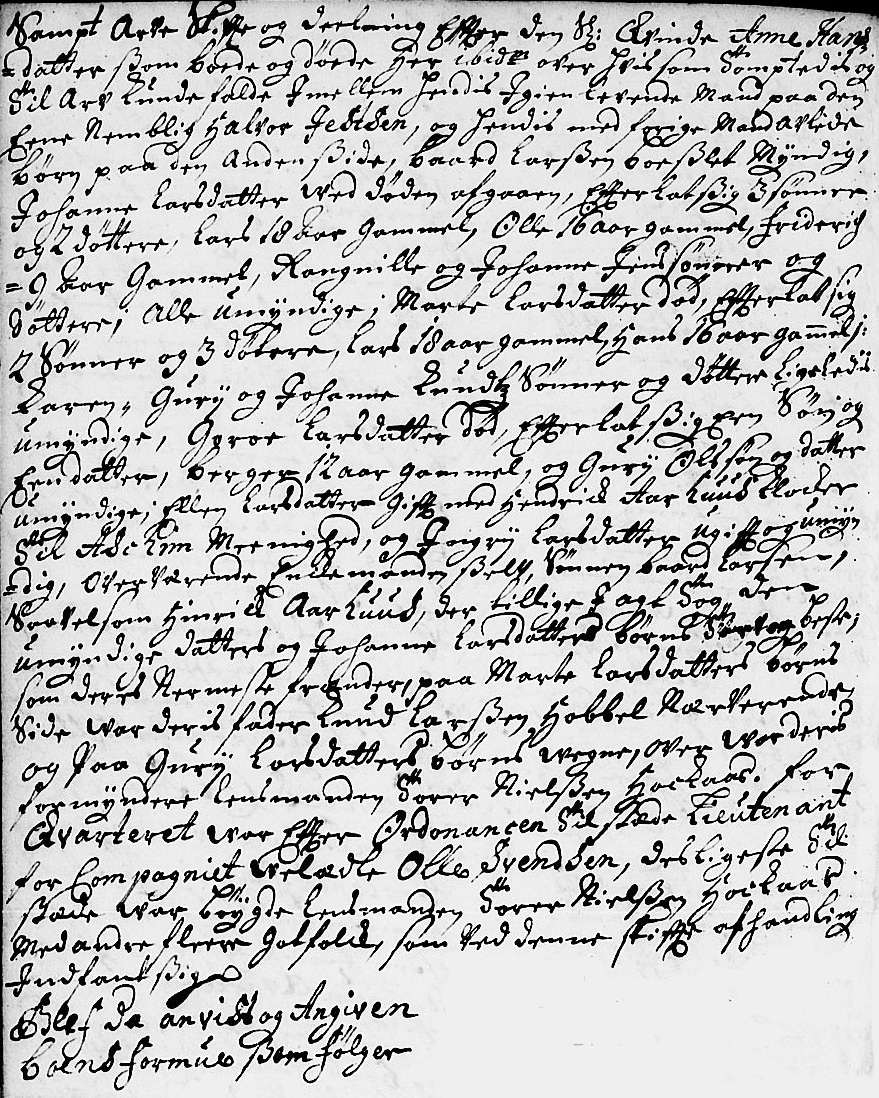 Sampt Arve Skifte og deelning Effter den Sl: Qvinde Anne Hans
=datter ssom boede og døede her ibidm over hvis som Samptedis og
Til Arv kunde falde Imellem hendis Igien levende Mand paa den
Eene Nemblig Halvor Jensen, og hendis med forige Mand avlede
børn paa den Anden sside, baard Larssen boesslet Myndig,
Johanne Larsdatter ved døden afgaaen, Effterlat ssig 3 sønner
og 2 døttere, Lars 18 aar gammel, Olle 16 aar gammel, Friderich
= 9 aar Gammel, Rangnille og Johanne Jens sønner og
Døttere; Alle umyndige; Marte Larsdatter død, Effterlat sig
2 Sønner og 3 døttere, Lars 18 aar gammel, Hans 16 aar gammel;
Karen, Gury og Johanne Knudtz Sønner og døttere ligeledis
umyndige, Goroe Larsdatter død, Effterlat ssig Een Søn og
Een datter, berger 12 aar gammel, og Gury Ols søn og datter
umyndige; Ellen Larsdatter gifft med Hendrick Aarkuus klocker
Til Aschim Meenighed, og Ingry Larsdatter ugifft og umyn
=dig, Overværende Enckemanden sselv, Sønnen baard Larsen,
Saavelsom Hinrick Aarkuus, der tillige I agt Tog den
umyndige datters og Johanne Larsdatters børns Tarv og beste;
som deres Nermeste frænder, paa Marte Larsdatters børns
Side war deris fader Knud Larssen Hobbel Nærverende,
og Paa Gury Larsdatters børns wegne, over war deris
formyndere Lensmanden Torer Nielssen Hockaas. For
Qvarteret war Effter Ordonancen Til stæde Lieutenant
for Compagniet Welædle Olle Svendsen, desligeste Til
stæde war bøygde Lensmanden Torer Nielssen Hockaas
Med andre fleere Gotfolck, som ved denne skiffte afhandling
Indfant ssig
Blef da anvist og Angiven
boens formue ssom følger